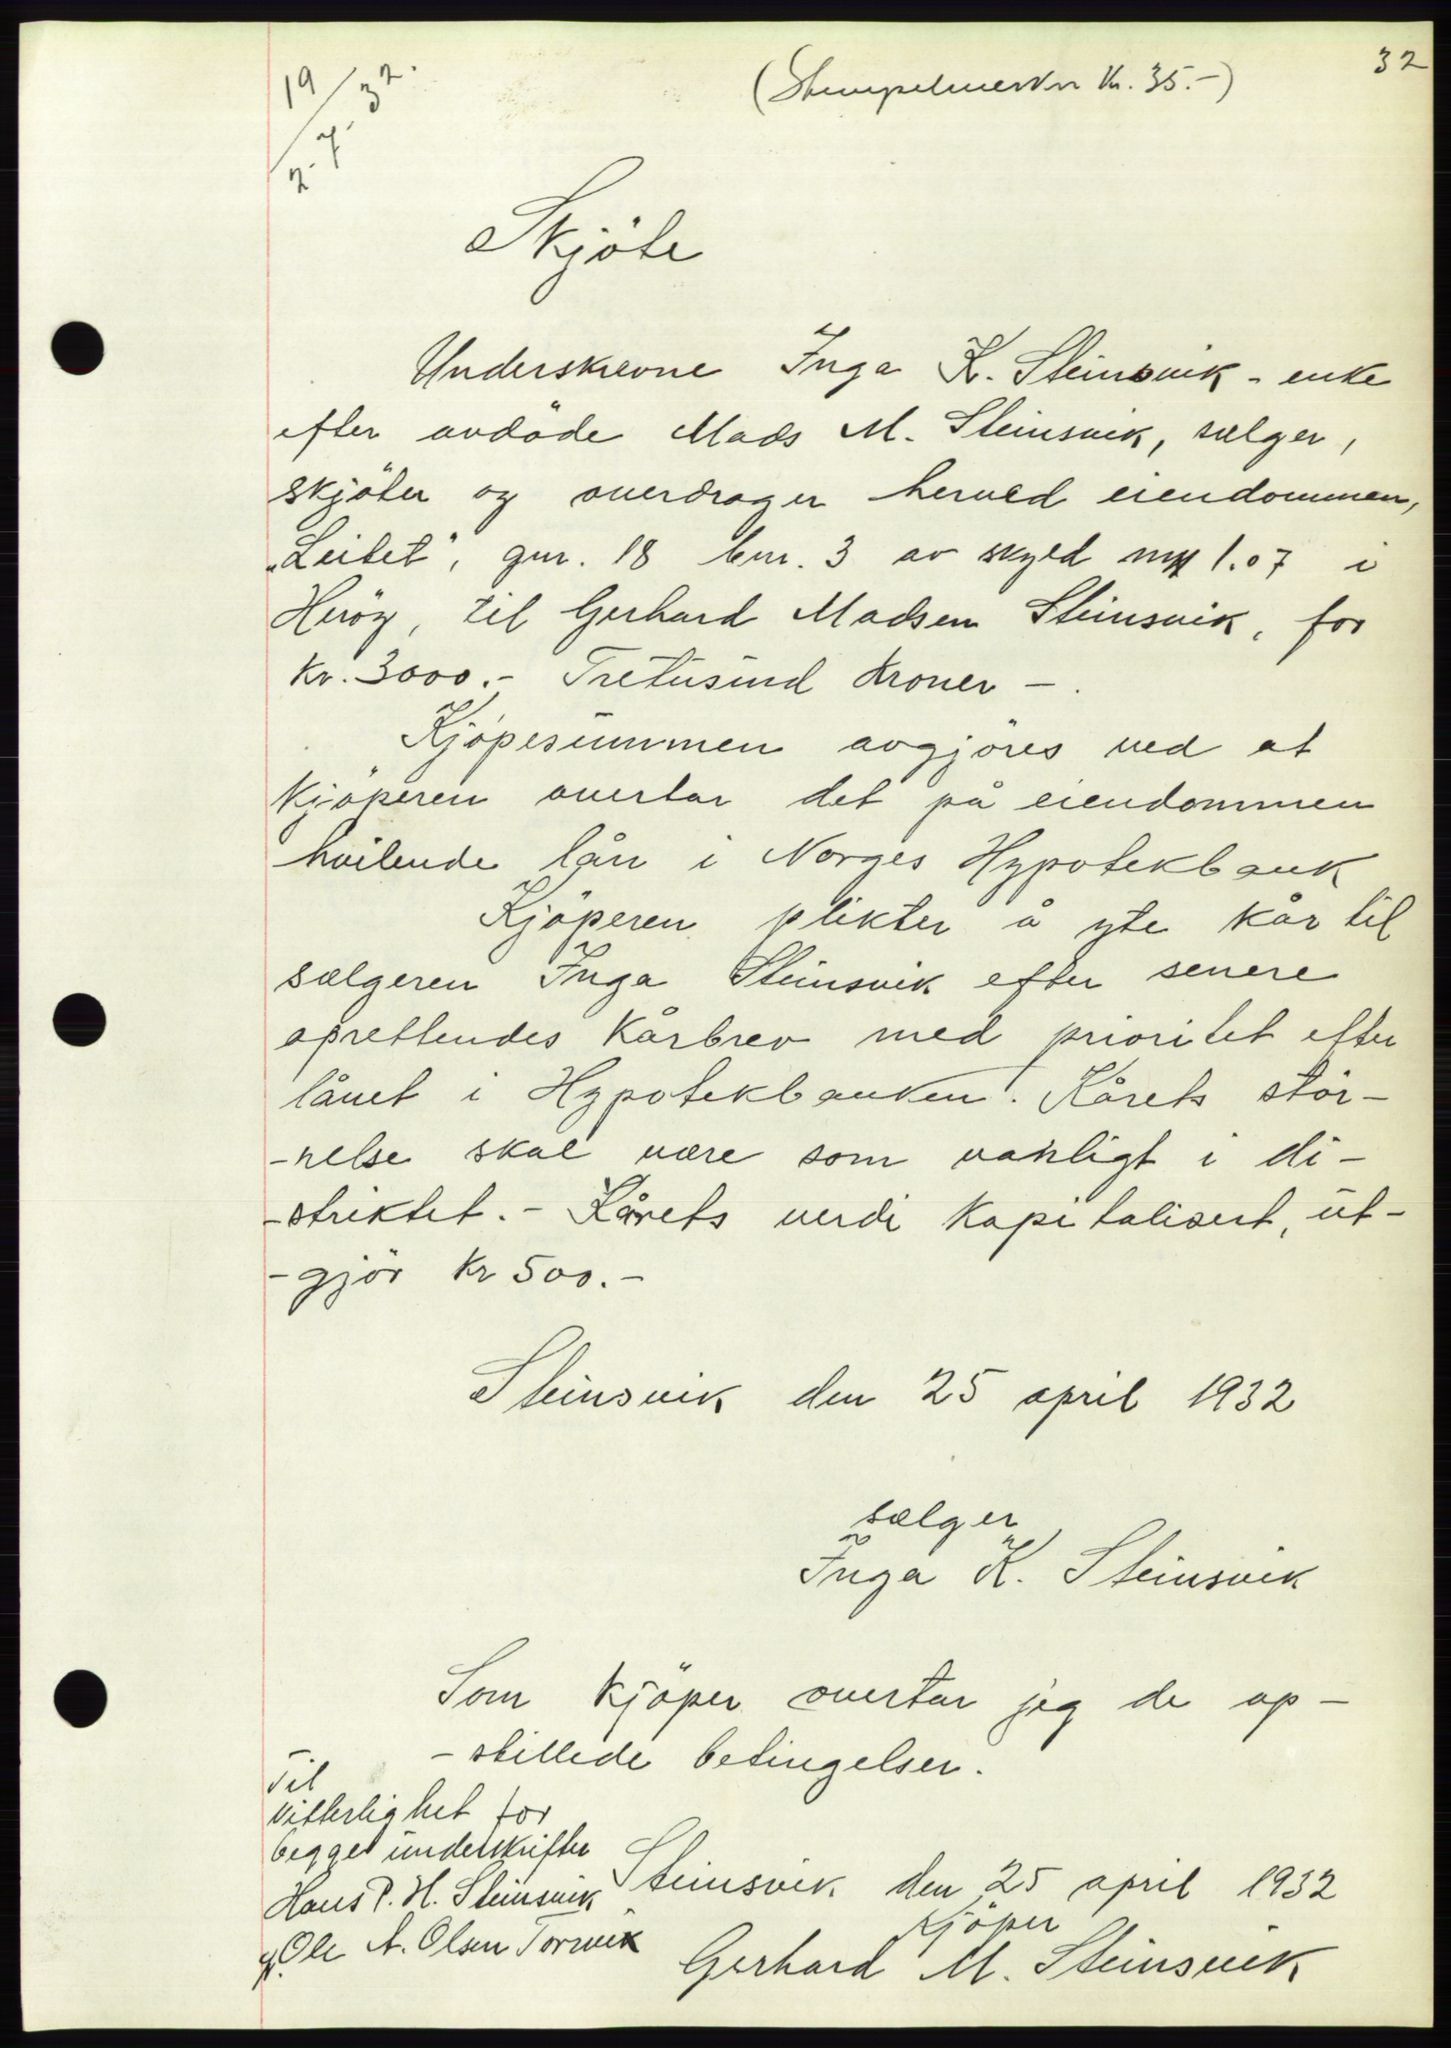 32
19/7. 32.
2.
(Stempelmerker kr. 35.-)
Skjöte
Underskrevne Inga K. Steinsvik - enke
efter avdöde Mads M. Steinsvik, sælger,
skjöter og overdrager herved eiendommen,
"Leitet", gnr. 18 bnr. 3 av skyld mrk 1.07 i
Heröy, til Gerhard Madsen Steinsvik, for
kr. 3000.- Tretusind kroner -.
Kjöpesummen avgjöres ved at
kjöperen overtar det på eiendommen
hvilende lån i Norges Hypotekbank
Kjöperen plikter å yte kår til
sælgeren Inga Steinsvik efter senere
oprettendes kårbrev med prioritet efter
lånet i Hypotekbanken. Kårets stör-
-relse skal være som vanligt i di-
-striktet. - Kårets verdi kapitalisert, ut-
-gjör kr 500.-
Steinsvik den 25 april 1932
sælger
Inga K. Steinsvik
Som kjöper overtar jeg de op-
-stillede betingelser.
Til
vitterlighet for
begges underskrifter
Hans P. H. Steinsvik
Ole A. Olsen Torvik
Steinsvik den 25 april 1932
kjöper
Gerhard M. Steinsvik